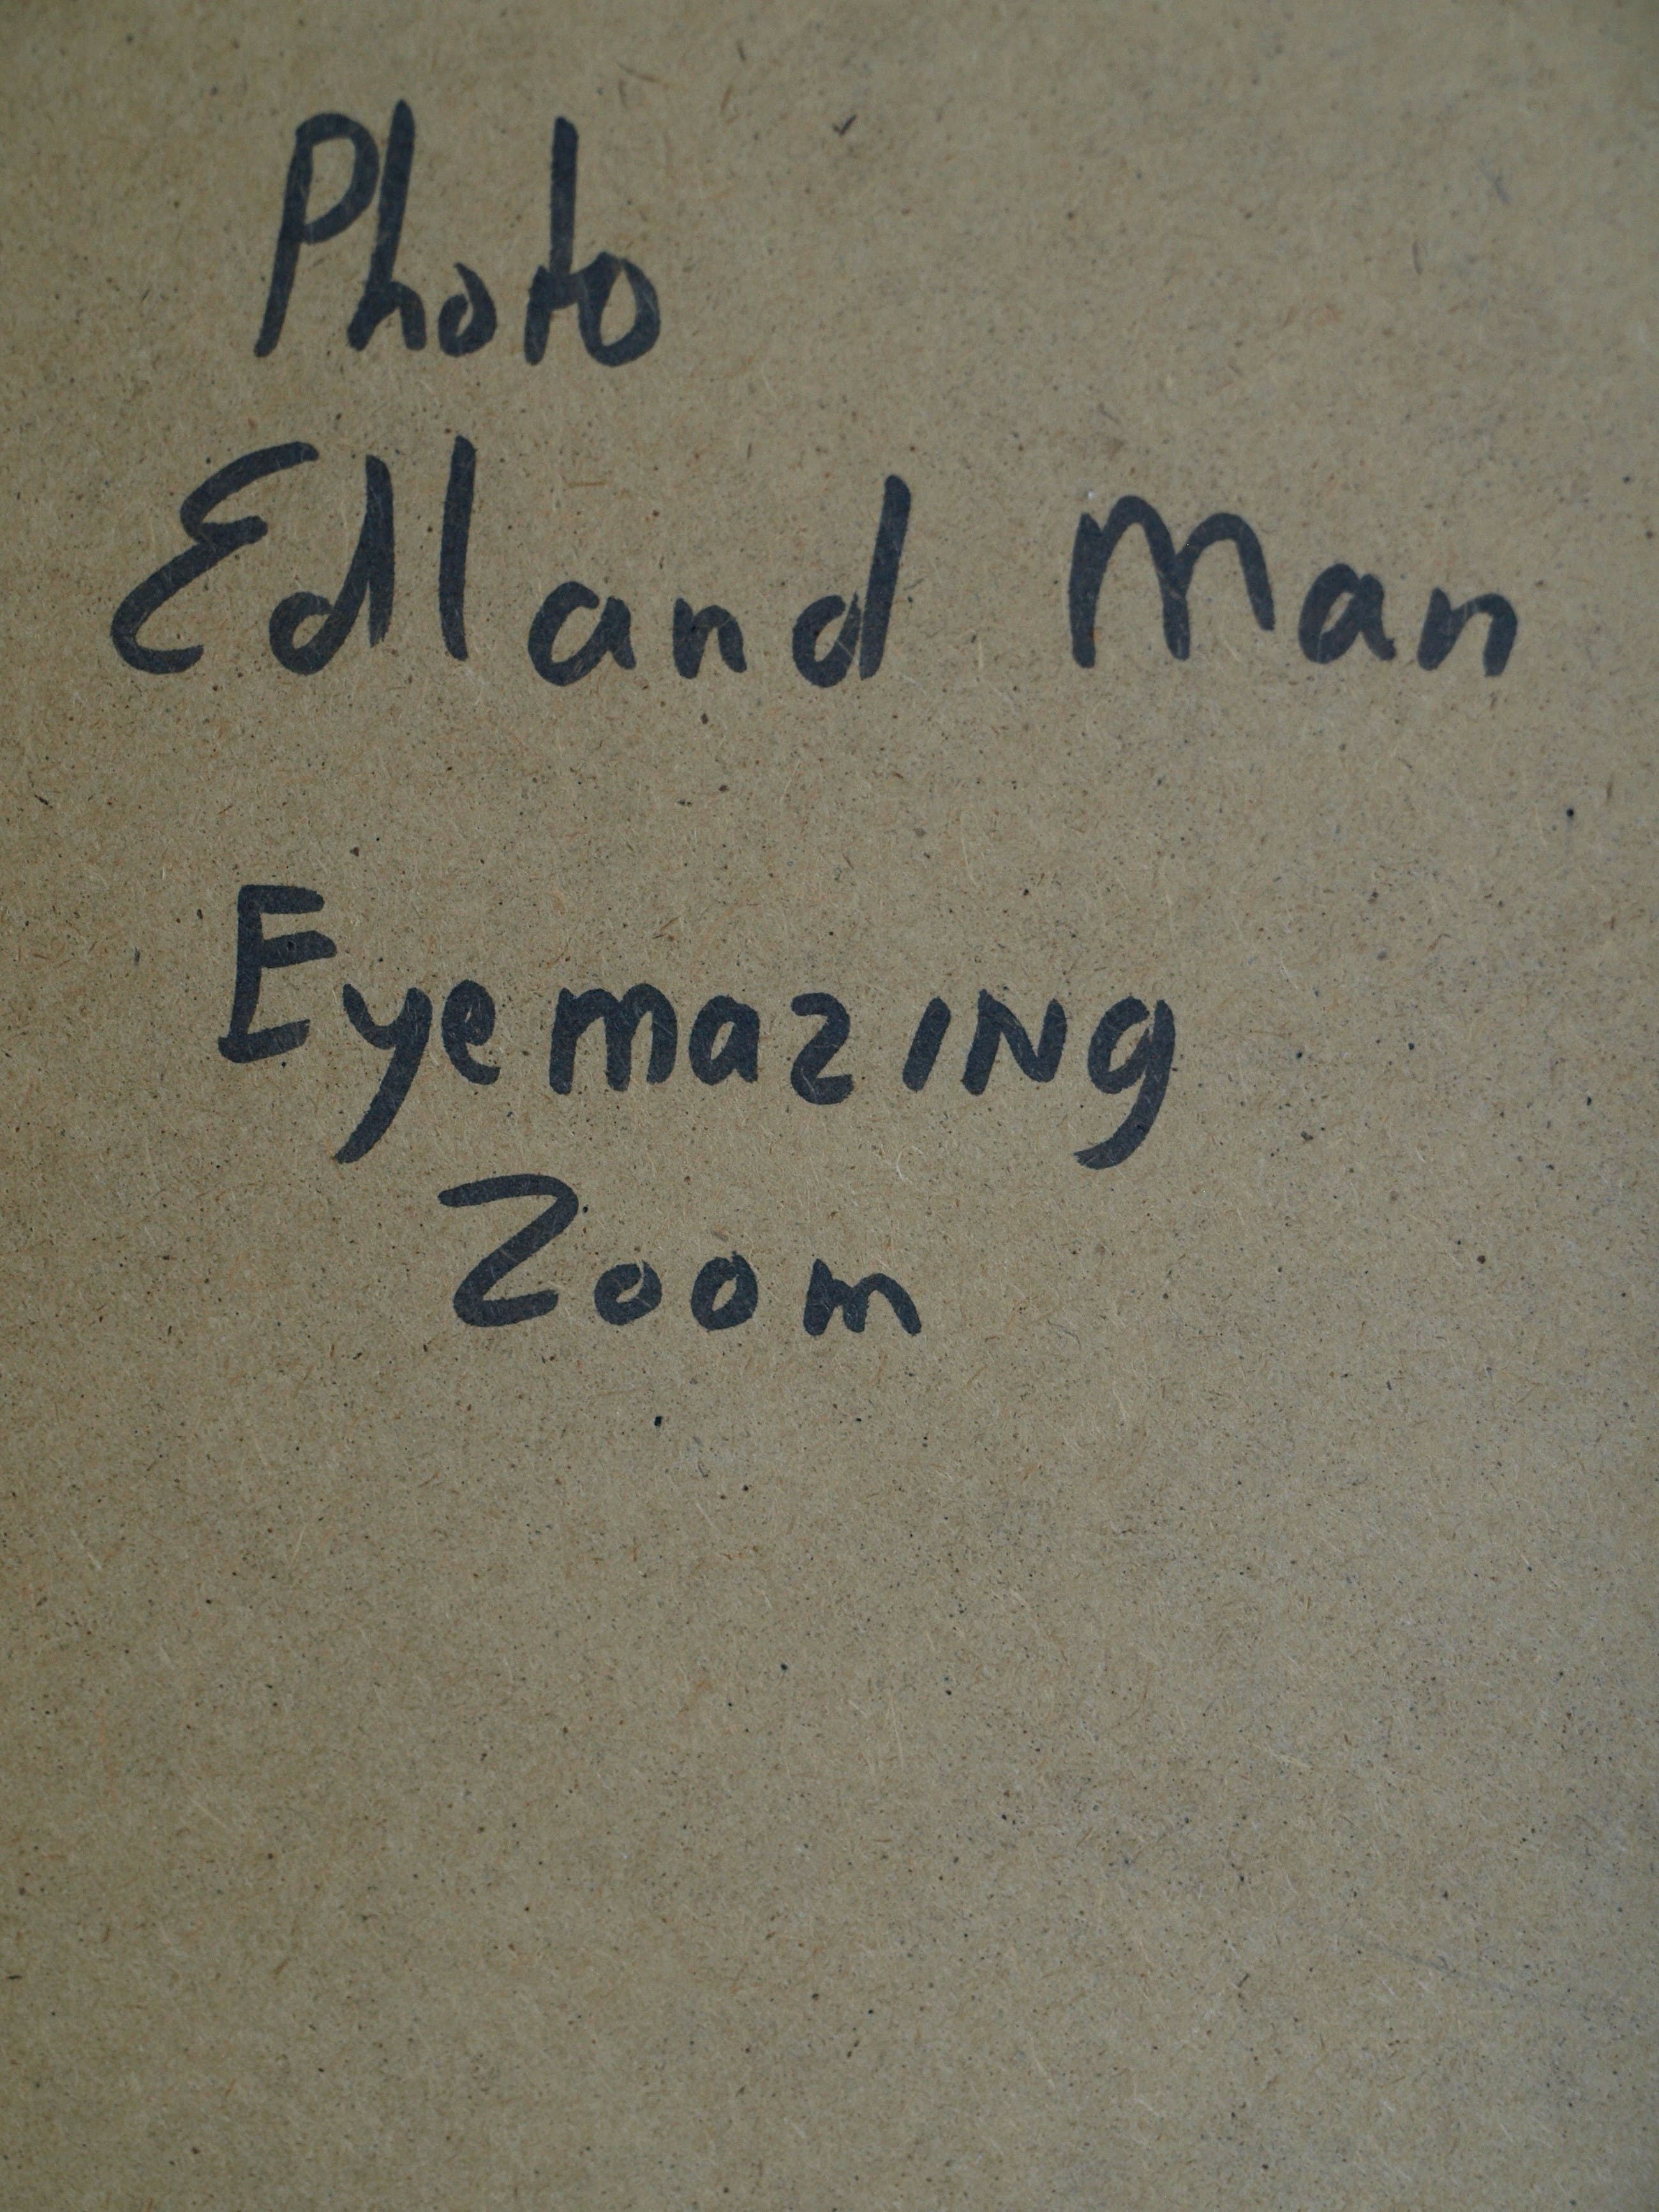 Photo
Edland Man
Eyemazing
Zoom